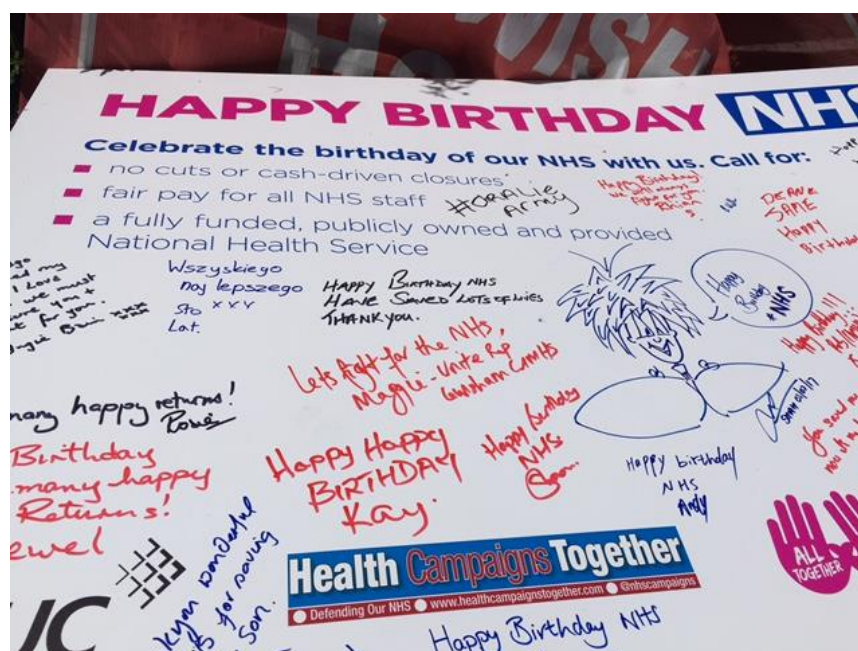 HAPPY BIRTHDAY NHS
Celebrate the birthday of our NHS with us. Call for:
no cuts or cash-driven closures
fair pay for all NHS staff
a fully funded, publicly owned and provided
National Health Service
#ORALIE
ARMY
Happy Birthday!
we will always
fight for you.
DEANE
SAME
Happy
Birthday
I Love
we must
for you.
Wszyskiego
naj lepszego
Sto xxx
Lat.
HAPPY BIRTHDAY NHS
HAVE SAVED LOTS OF LIVES
THANK YOU.
Happy
Birthday
NHS
Happy Birthday!!!
Lets fight for the NHS,
Maggie - Unite Rep
many happy returns!
Happy Birthday
NHS
Happy Happy
BIRTHDAY
Kay.
Birthday
many happy
Returns!
Happy birthday
NHS
Andy
wonderful
for saving
son.
ALL
TOGETHER
Health Campaigns Together
Defending Our NHS www.healthcampaignstogether.com @nhscampaigns
UC
Happy Birthday NHS